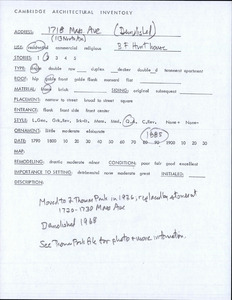 CAMBRIDGE ARCHITECTURAL INVENTORY
ADDRESS: 1718 Mass Ave (Demolished)
(113 North Av)
USE: residential commercial religious B.F. Hunt house
STORIES: 1 2 3 4 5
TYPE: single double row duplex double d tenement apartment
ROOF: hip gable front gable flank mansard flat
MATERIAL: wood brick SIDING: original subsequent
PLACEMENT: narrow to street broad to street square
ENTRANCE: flank front side front center
STYLE:
ORNAMENT: little moderate elaborate
DATE: 1790 1800 10 20 30 40 50 60 70 80 90 1900 10 20 30 1885
MAP:
REMODELING: drastic moderate when CONDITION: poor fair good excellent
IMPORTANCE TO SETTING: detrimental none moderate great INITIALED:
DESCRIPTION:
Moved to 2 Thomas Park in 1926, replaced by stores at
1720-1730 Mass Ave
Demolished 1968
See Thomas Park file for photo + more information.